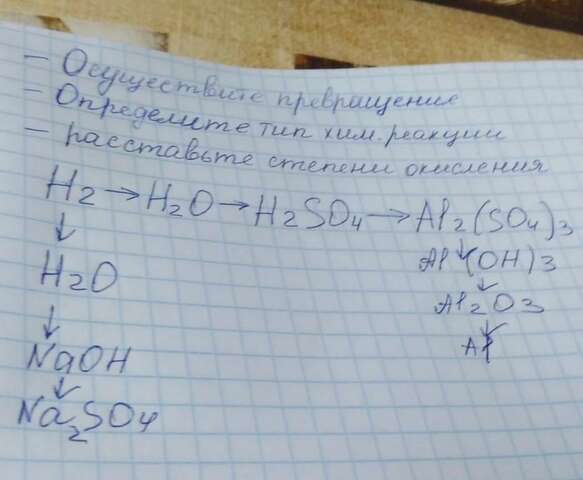 - Осуществите превращение
- Определите тип хим. реакции
- расставьте степени окисления
H2 → H2O → H2SO4 → Al2(SO4)3
↓
Al(OH)3
↓
Al2O3
↓
Al
↓
H2O
↓
NaOH
↓
Na2SO4